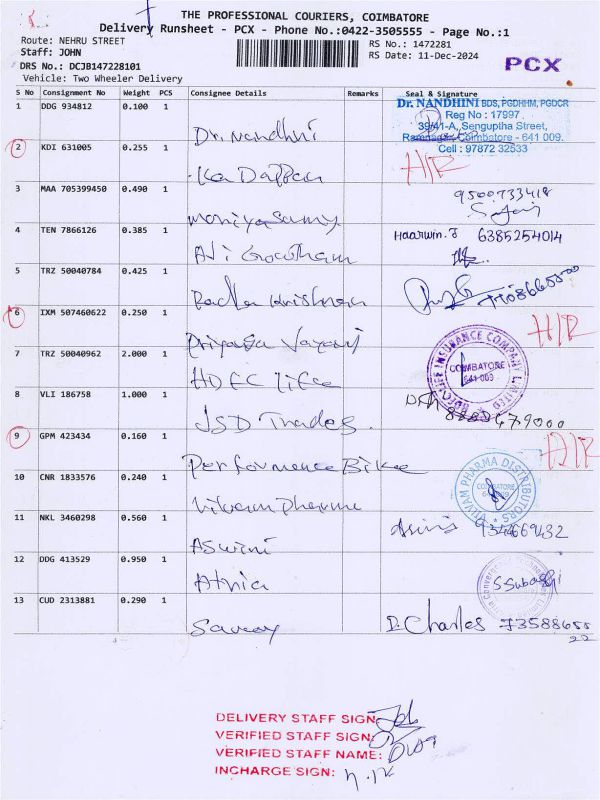 THE PROFESSIONAL COURIERS, COIMBATORE
Delivery Runsheet - PCX - Phone No.:0422-3505555 - Page No.:1
Route: NEHRU STREET
RS No.: 1472281
Staff: JOHN
RS Date: 11-Dec-2024
DRS No.: DCJB147228101
PCX
Vehicle: Two Wheeler Delivery
S No Consignment No Weight PCS Consignee Details Remarks Seal & Signature
1 DDG 934812 0.100 1 Dr. Nandhini
Dr. NANDHINI BDS, PGDHHM, PGDCR
Reg No : 17997
39/41-A, Senguptha Street,
Ramnagar, Coimbatore - 641 009.
Cell : 97872 32533
2 KDI 631005 0.255 1
H/R
3 MAA 705399450 0.490 1 moniyasamy
9500733418
4 TEN 7866126 0.385 1 Gowtham
Haarwin.J 6385254014
5 TRZ 50040784 0.425 1 Radha Krishnan
6 IXM 507460622 0.250 1 Priyanga
H/R
7 TRZ 50040962 2.000 1 HDFC life
INSURANCE COMPANY LIMITED
COIMBATORE
641 009
8 VLI 186758 1.000 1 JSD Trades.
9 GPM 423434 0.160 1 Performence Bike
H/R
10 CNR 1833576 0.240 1 Vikram Pharma
PHARMA DISTRIBUTORS
11 NKL 3460298 0.560 1 Aswini
12 DDG 413529 0.950 1
13 CUD 2313881 0.290 1 Savoy
D. Charles 73588655
22
DELIVERY STAFF SIGN:
VERIFIED STAFF SIGN:
VERIFIED STAFF NAME:
INCHARGE SIGN: